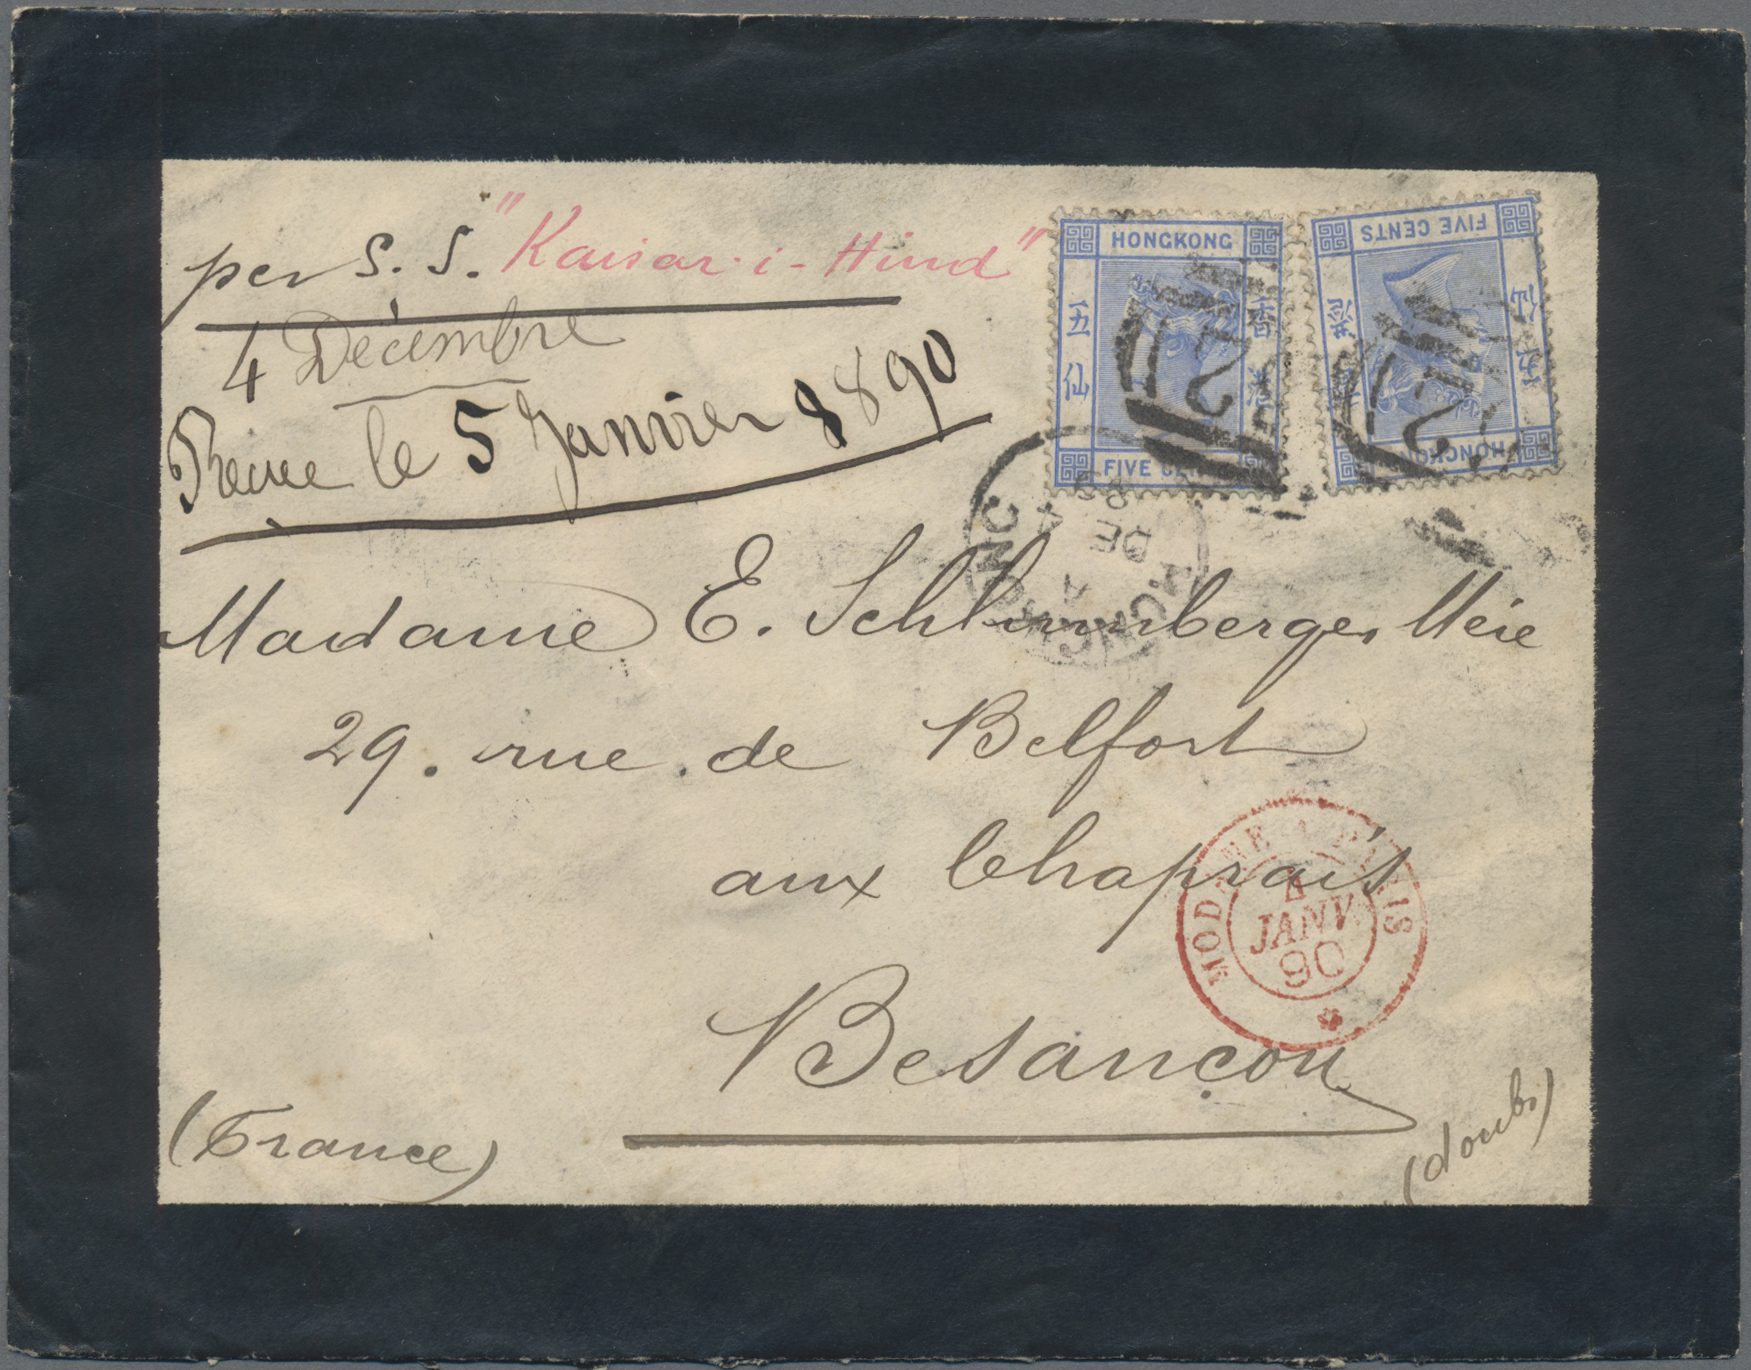 per S. S. "Kaisar-i-Hind"
4 Décembre
Recue le 5 Janvier 1890
HONGKONG
香港
五仙
FIVE CENTS
FIVE CENTS
HONGKONG
HONG KONG
A
DE 4
89
Madame E. Schlumberger Mère
29. rue de Belfort
aux Chaprais
Besançon
(France)
(doubs)
MODANE A PARIS
4
JANV
90